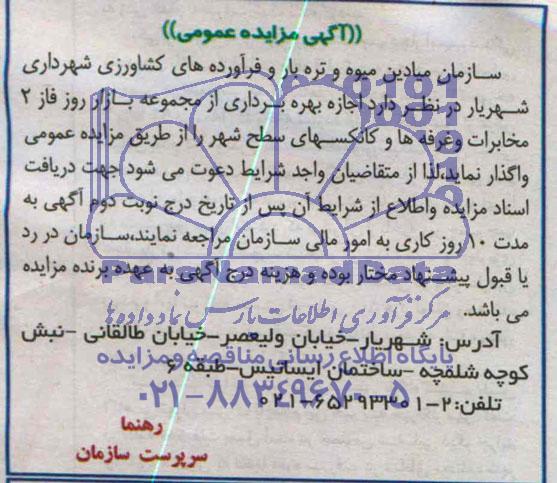 ((آگهی مزایده عمومی))
سازمان میادین میوه و تره بار و فرآورده های کشاورزی شهرداری
شهریار در نظر دارد اجازه بهره برداری از مجموعه بازار روز فاز ۲
مخابرات وغرفه ها و کانکسهای سطح شهر را از طریق مزایده عمومی
واگذار نماید،لذا از متقاضیان واجد شرایط دعوت می شود جهت دریافت
اسناد مزایده واطلاع از شرایط آن پس از تاریخ درج نوبت دوم آگهی به
مدت ۱۰ روز کاری به امور مالی سازمان مراجعه نمایند،سازمان در رد
یا قبول پیشنهاد مختار بوده و هزینه درج آگهی به عهده برنده مزایده
ParsNamadData
می باشد.
مرکز فرآوری اطلاعات پارس نماد داده ها
آدرس: شهریار-خیابان ولیعصر-خیابان طالقانی -نبش
پایگاه اطلاع رسانی مناقصه ومزایده
کوچه شلقچه -ساختمان ایساتیس-طبقه ۶
۰۲۱-۸۸۳۴۹۶۷۰-۵
تلفن:۲-۰۲۱-۶۵۲۹۳۳۰۱
رهنما
سرپرست سازمان